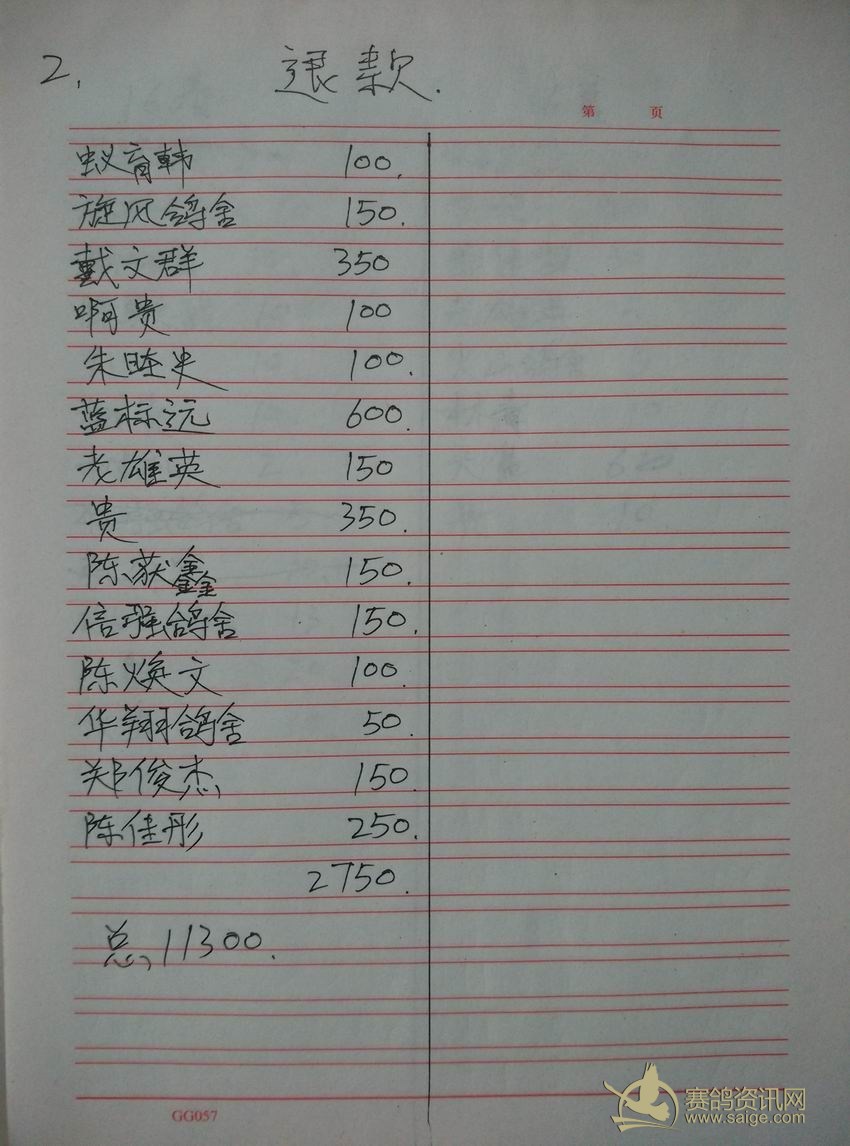 2. 退款.
第 页
蚁育韩 100.
旋风鸽舍 150.
戴文群 350
啊贵 100
朱 100.
蓝标远 600.
老雄英 150
贵 350.
陈荻鑫 150.
信强鸽舍 150.
陈焕文 100.
华翔鸽舍 50.
郑俊杰 150
陈佳彤 250.
2750.
总、11300.
GG057
赛鸽资讯网
www.saige.com